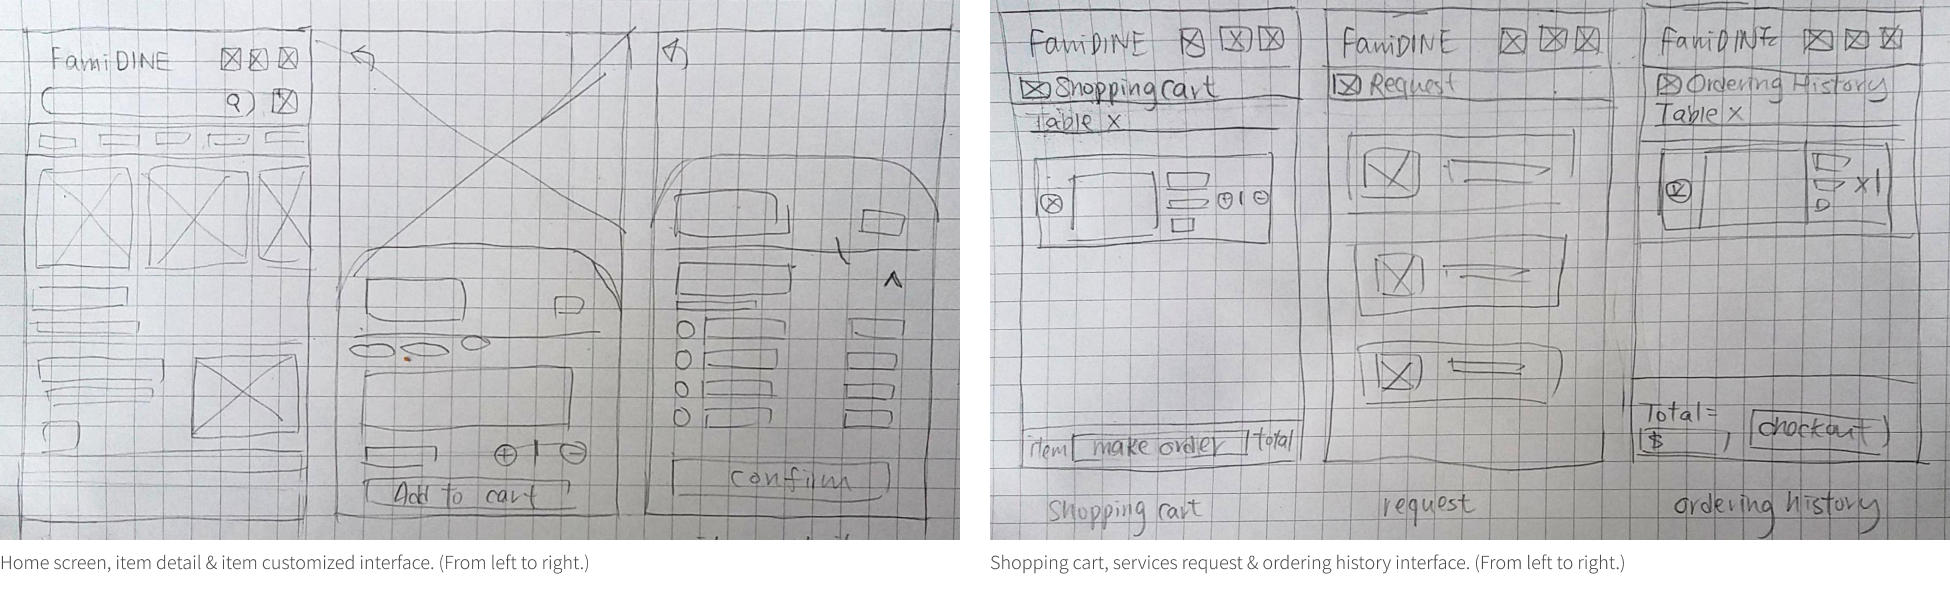 FamiDINE
Add to cart
confirm
Home screen, item detail & item customized interface. (From left to right.)
FamiDINE
Shopping cart
Table x
item make order total
Shopping cart
FamiDINE
Request
request
FamiDINE
Ordering History
Table x
x1
Total=
$
checkout
ordering history
Shopping cart, services request & ordering history interface. (From left to right.)